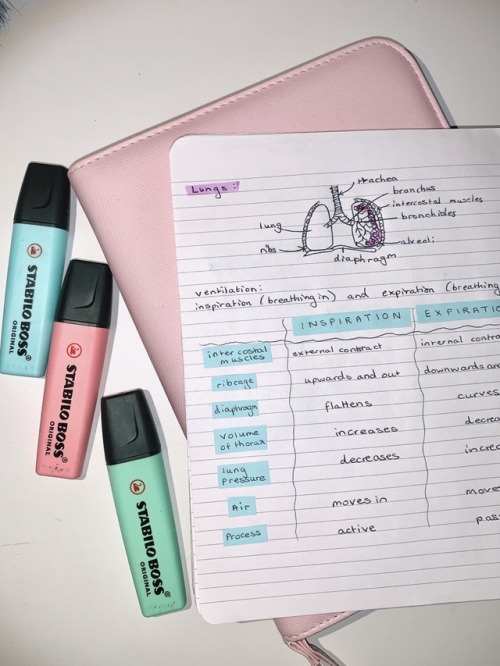 Lungs:
trachea
bronchus
intercostal muscles
bronchioles
lung
ribs
alveoli
diaphragm
ventilation:
inspiration (breathing in) and expiration (breathing
INSPIRATION EXPIRATIO
intercostal muscles external contract internal contra
ribcage upwards and out downwards an
diaphragm flattens curves
volume of thorax increases decrea
lung pressure decreases increa
Air moves in move
Process active pas
STABILO BOSS
ORIGINAL
STABILO BOSS
ORIGINAL
STABILO BOSS
ORIGINAL